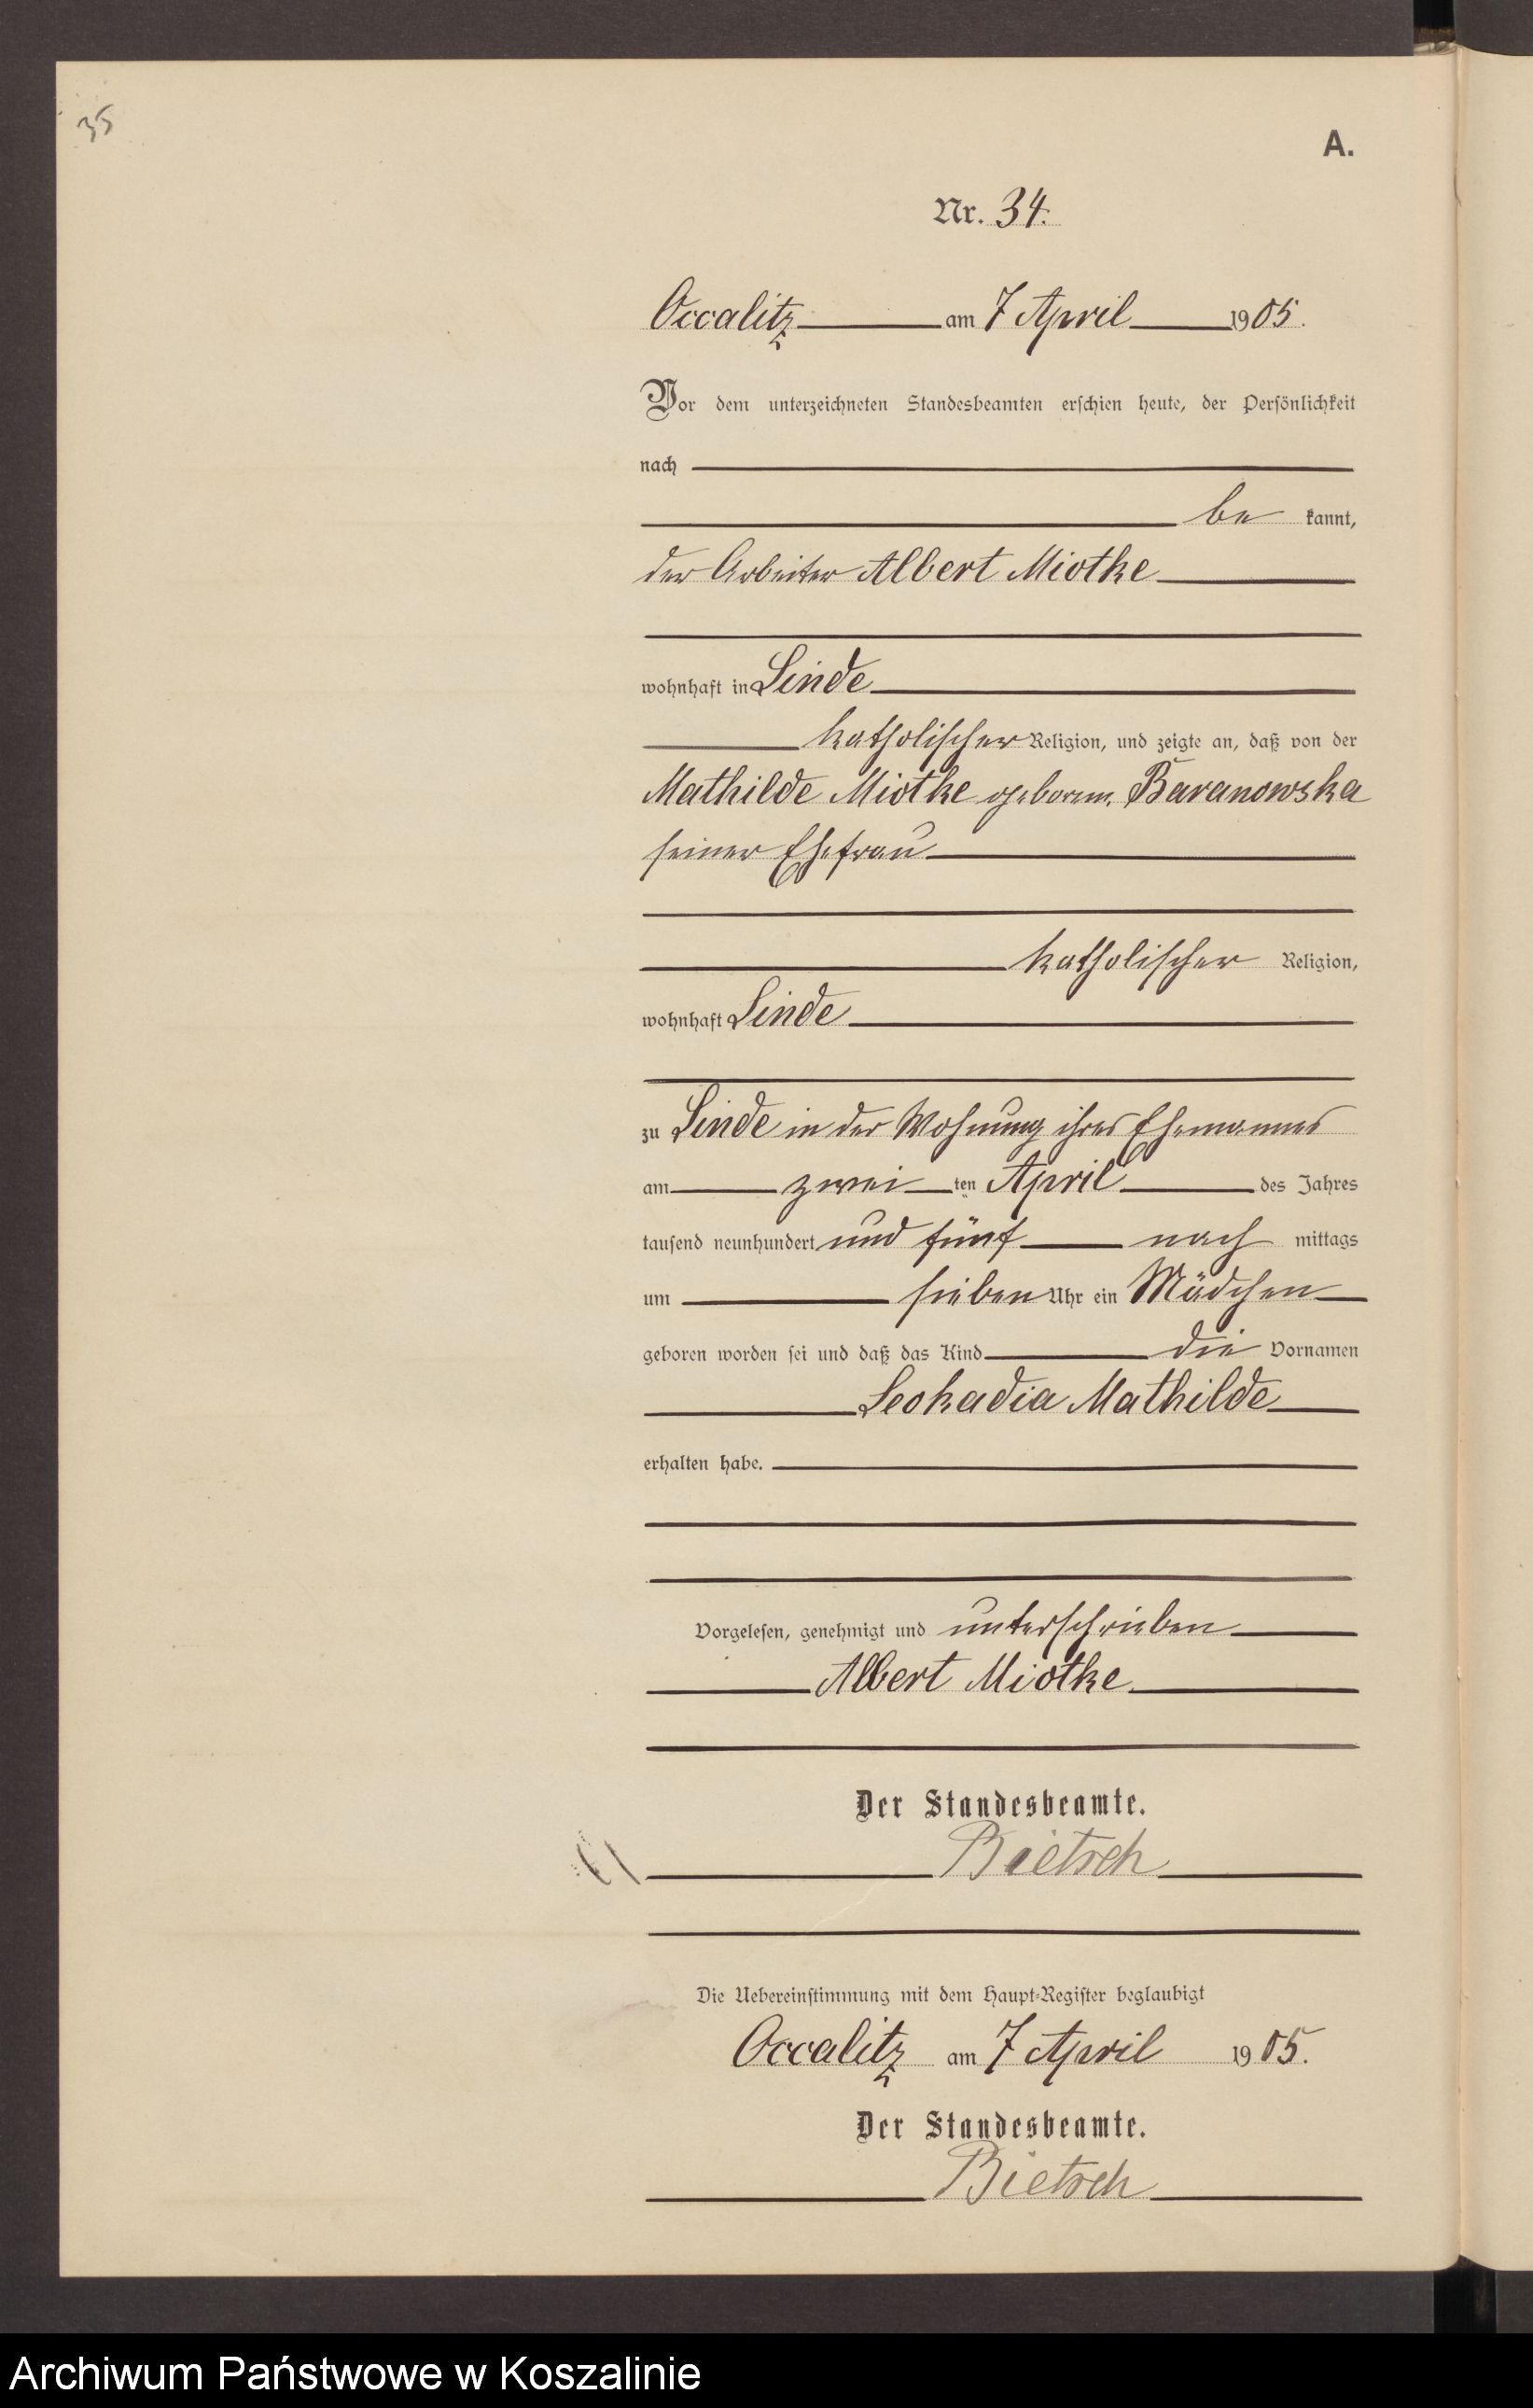 35
A.
Nr. 34.
Occalitz am 7 April 1905.
Vor dem unterzeichneten Standesbeamten erschien heute, der Persönlichkeit
nach
be kannt,
der Arbeiter Albert Miotke
wohnhaft in Linde
katholischer Religion, und zeigte an, daß von der
Mathilde Miotke geborene, Baranowska
seiner Ehefrau
katholischer Religion,
wohnhaft Linde
zu Linde in der Wohnung ihres Ehemannes
am zwei ten April des Jahres
tausend neunhundert und fünf nach mittags
um sieben Uhr ein Mädchen
geboren worden sei und daß das Kind die Vornamen
Leokadia Mathilde
erhalten habe.
Vorgelesen, genehmigt und unterschrieben
Albert Miotke
Der Standesbeamte.
Bietsch
Die Uebereinstimmung mit dem Haupt-Register beglaubigt
Occalitz am 7 April 1905.
Der Standesbeamte.
Bietsch
Archiwum Państwowe w Koszalinie